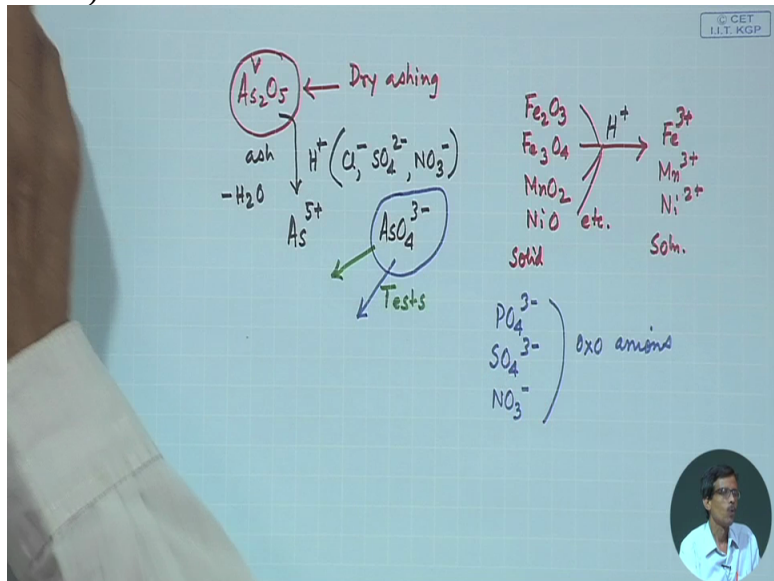 © CET
I.I.T. KGP
V
As₂O₅ ← Dry ashing
ash
H⁺ (Cl⁻, SO₄²⁻, NO₃⁻)
-H₂O
As⁵⁺
AsO₄³⁻
Tests
Fe₂O₃
Fe₃O₄
MnO₂
NiO etc.
Solid
H⁺
Fe³⁺
Mn³⁺
Ni²⁺
Soln.
PO₄³⁻
SO₄³⁻
NO₃⁻
oxo anions